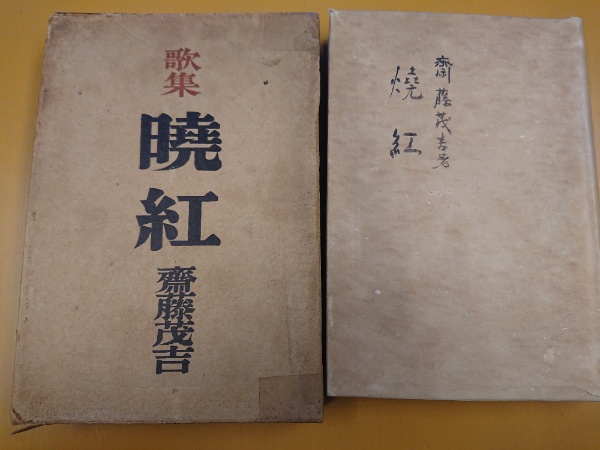 歌集
曉紅
齋藤茂吉
齋藤茂吉著
燒紅